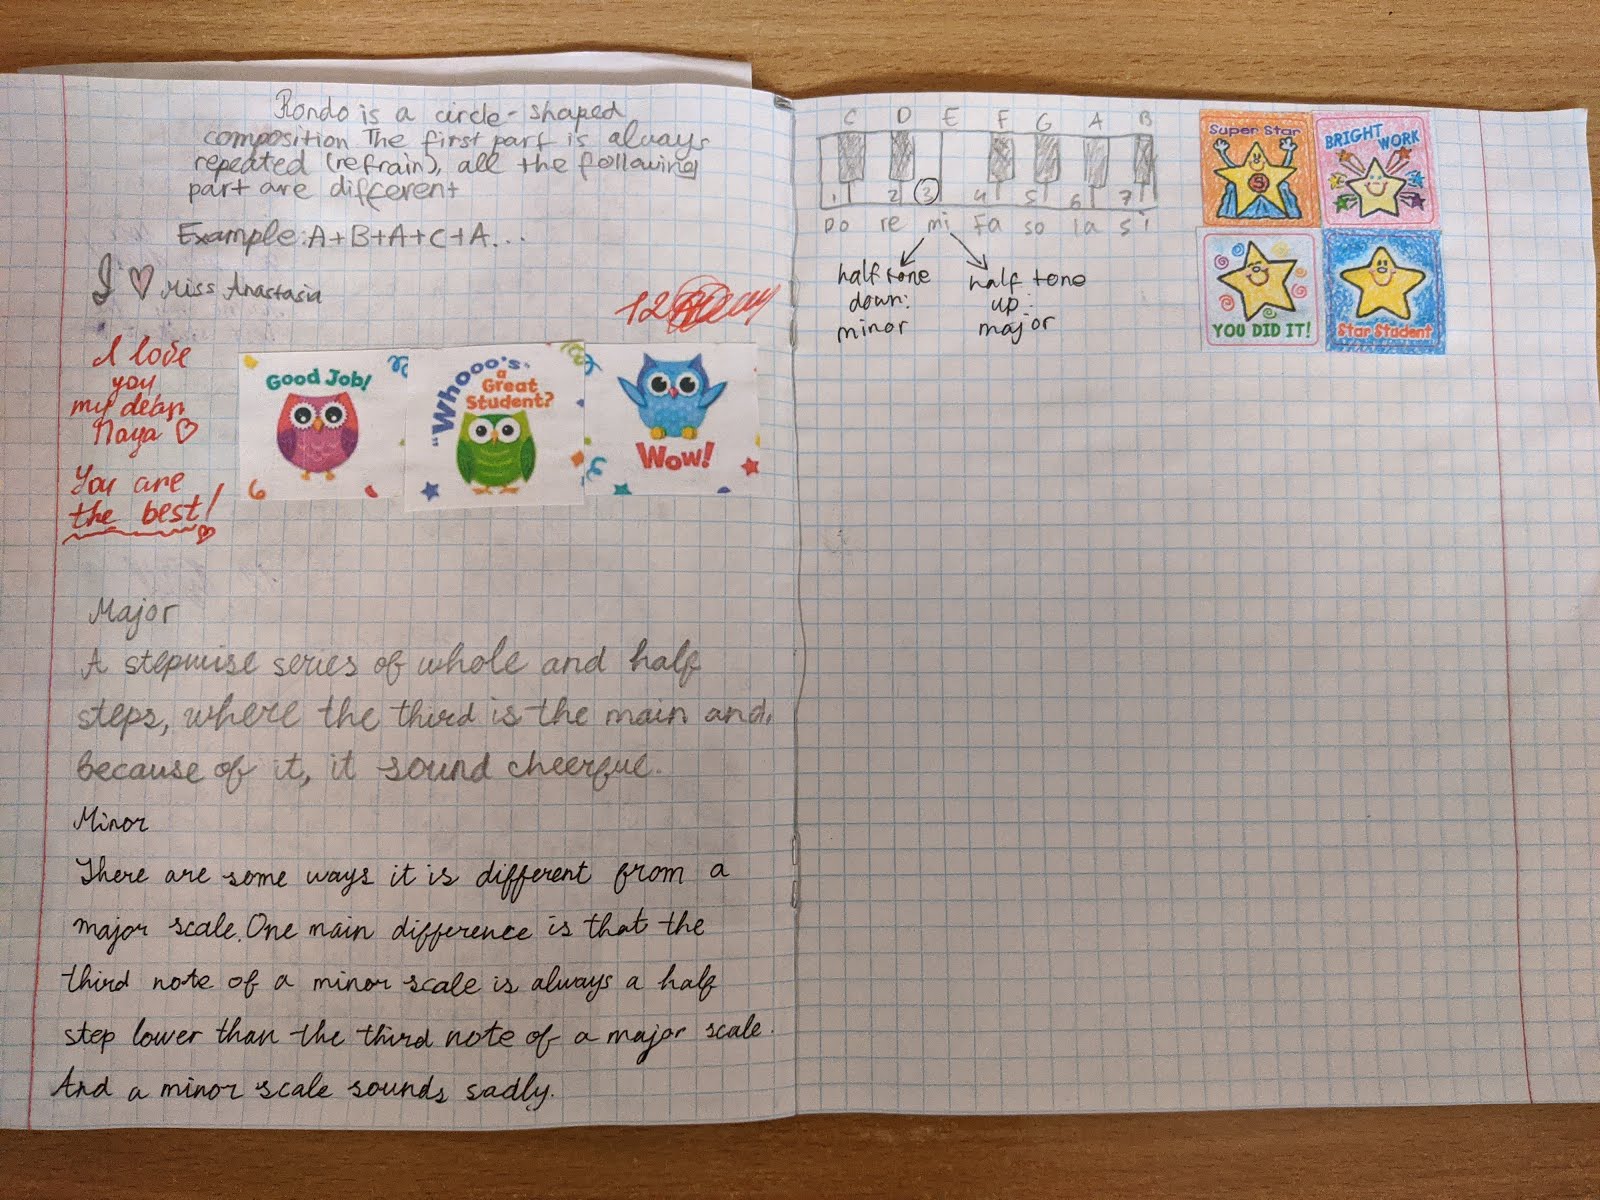 Rondo is a circle-shaped
composition The first part is always
repeated (refrain), all the following
part are different
Example: A+B+A+C+A...
I ♡ Miss Anastasia
12
I love
you
my dear
Naya ♡
You are
the best!
Good Job!
"Whooo's
a
Great
Student?
Wow!
Major
A stepwise series of whole and half
steps, where the third is the main and,
because of it, it sound cheerful.
Minor
There are some ways it is different from a
major scale. One main difference is that the
third note of a minor scale is always a half
step lower than the third note of a major scale.
And a minor scale sounds sadly.
C D E F G A B
1 2 3 4 5 6 7
Do re mi Fa so la si
half tone
down:
minor
half tone
up:
major
Super Star
S
BRIGHT WORK
YOU DID IT!
Star Student